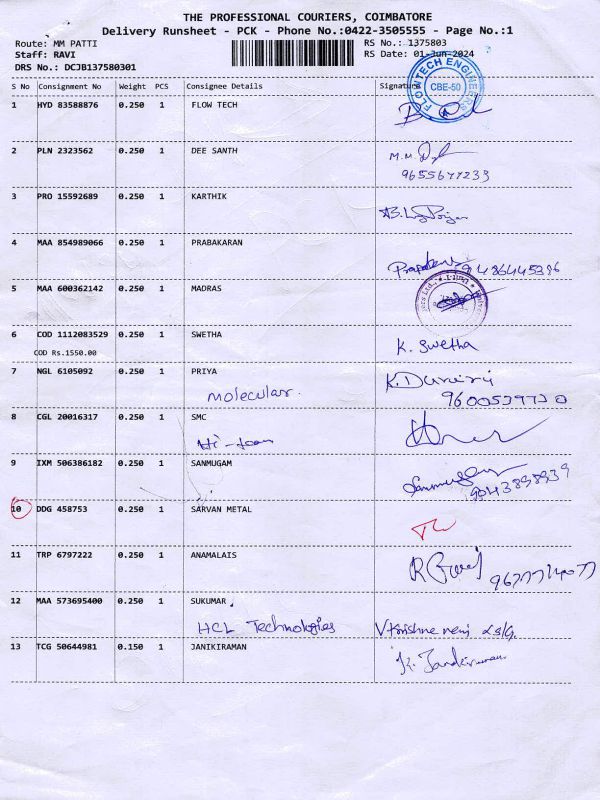 THE PROFESSIONAL COURIERS, COIMBATORE
Delivery Runsheet - PCK - Phone No.:0422-3505555 - Page No.:1
Route: MM PATTI RS No.: 1375803
Staff: RAVI RS Date: 01-Jun-2024
DRS No.: DCJB137580301
FLOWTECH ENGINEERS
CBE-50
S No Consignment No Weight PCS Consignee Details Signature
1 HYD 83588876 0.250 1 FLOW TECH
2 PLN 2323562 0.250 1 DEE SANTH M.M
9655677233
3 PRO 15592689 0.250 1 KARTHIK
4 MAA 854989066 0.250 1 PRABAKARAN
9486445386
5 MAA 600362142 0.250 1 MADRAS
6 COD 1112083529 0.250 1 SWETHA K. Swetha
COD Rs.1550.00
7 NGL 6105092 0.250 1 PRIYA
molecular. 9600539730
8 CGL 20016317 0.250 1 SMC
9 IXM 506386182 0.250 1 SANMUGAM
9043898939
10 DDG 458753 0.250 1 SARVAN METAL
11 TRP 6797222 0.250 1 ANAMALAIS
12 MAA 573695400 0.250 1 SUKUMAR
HCL Technologies
13 TCG 50644981 0.150 1 JANIKIRAMAN
K. Jankiraman